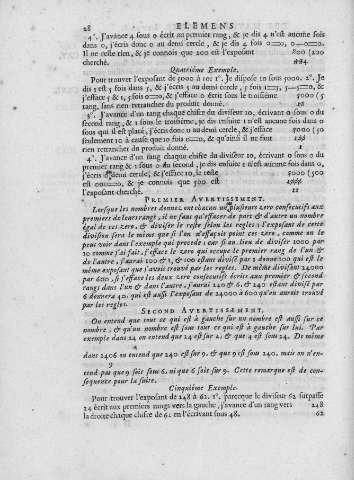 28 ELEMENS
4°. J'avance 4 sous 0 écrit au premier rang, & je dis 4 n'est aucune fois
dans 0, j'écris donc 0 au demi cercle, & je dis 4 fois
Il ne reste rien, & je connois que 200 est l'exposant 800 (200
cherché.
Quatriéme Exemple.
Pour trouver l'exposant de 5000 à 10: 1°. Je dispose 10 sous 5000. 2°. Je
dis 1 est 5 fois dans 5, & j'écris 5 au demi cercle,
j'efface 5 & 1, 5 fois & j'efface 0 écrit sous le troisiéme 5000 (5
rang, sans rien retrancher du produit donné. 10
3°. J'avance d'un rang chaque chifre du diviseur 10, écrivant 0 sous 0 du
second rang, & 1 sous le troisiéme, je dis ensuite 1 est aucune fois dans 0
sous qui il est placé, j'écris 0 au demi cercle, & j'efface 5000 (50
seulement 10 à cause que 10 fois & qu'ainsi il ne faut
rien retrancher du produit donné. 1
4°. J'avance d'un rang chaque chifre du diviseur 10, écrivant 0 sous 0 du
premier rang & 1 sous 0 au second, je dis ensuite 1 est aucune fois dans 0,
j'écris 0 demi cercle, & j'efface 10, le reste 5000 (500
est & je connois que 500 est
l'exposant cherché. 11
PREMIER AVERTISSEMENT.
Lorsque les nombres donnez ont chacun un ou plusieurs zero consecutifs aux
premiers de leurs rangs, il ne faut qu'effacer de part & d'autre un nombre
égal de ces zero, & diviser le reste selon les regles: l'exposant de cette
division sera le même que si l'on n'effaçoit point ces zero, comme on le
peut voir dans l'exemple qui précede; car si au lieu de diviser 5000 par
10 comme j'ai fait, j'efface le zero qui occupe le premier rang de l'un &
de l'autre, j'aurai 500 & 1, & 500 étant divisé par 1 donne 500 qui est le
même exposant que j'avois trouvé par les regles. De même divisant 24000
par 600, si j'efface les deux zero consecutifs écrits aux premier & second
rangs dans l'un & dans l'autre, j'aurai 240 & 6, & 240 étant divisé par
6 donnera 40, qui est aussi l'exposant de 24000 à 600 qu'on auroit trouvé
par les regles.
SECOND AVERTISSEMENT.
On entend que tout ce qui est à gauche sur un nombre est aussi sur ce
nombre, & qu'un nombre est sous tout ce qui est à gauche sur lui. Par
exemple dans 24 on entend que 24 est sur 2, & que 4 est sous 24. De même
dans 2406 on entend que 240 est sur 9, & que 9 est sous 240, mais on n'en-
tend pas que 9 soit sous 6, ni que 6 soit sur 9. Cette remarque est de con-
sequence pour la suite.
Cinquiéme Exemple.
Pour trouver l'exposant de 248 à 62. 1°. parceque le diviseur 62 surpasse
24 écrit aux premiers rangs vers la gauche, j'avance d'un rang vers 248
la droite chaque chifre de 62 en l'écrivant sous 48. 62